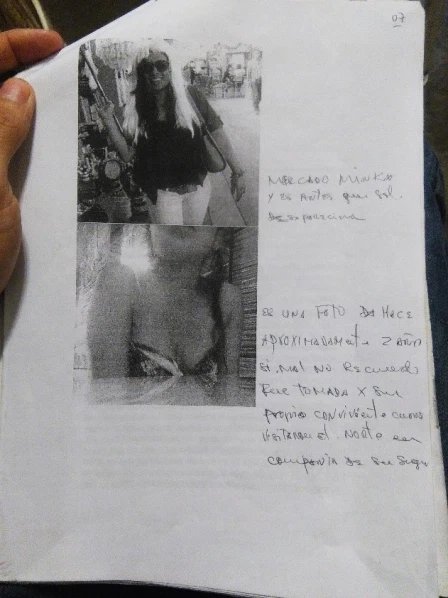 07
MERCADO MINKA
Y ES ANTES que Sol.
ES UNA FOTO DE HACE
APROXIMADAMENTE 2 AÑOS
SI MAL NO RECUERDO
FUE TOMADA X SU
PROPIO CONVIVIENTE CUANDO
VISITARON EL NORTE EN
COMPAÑIA DE SU